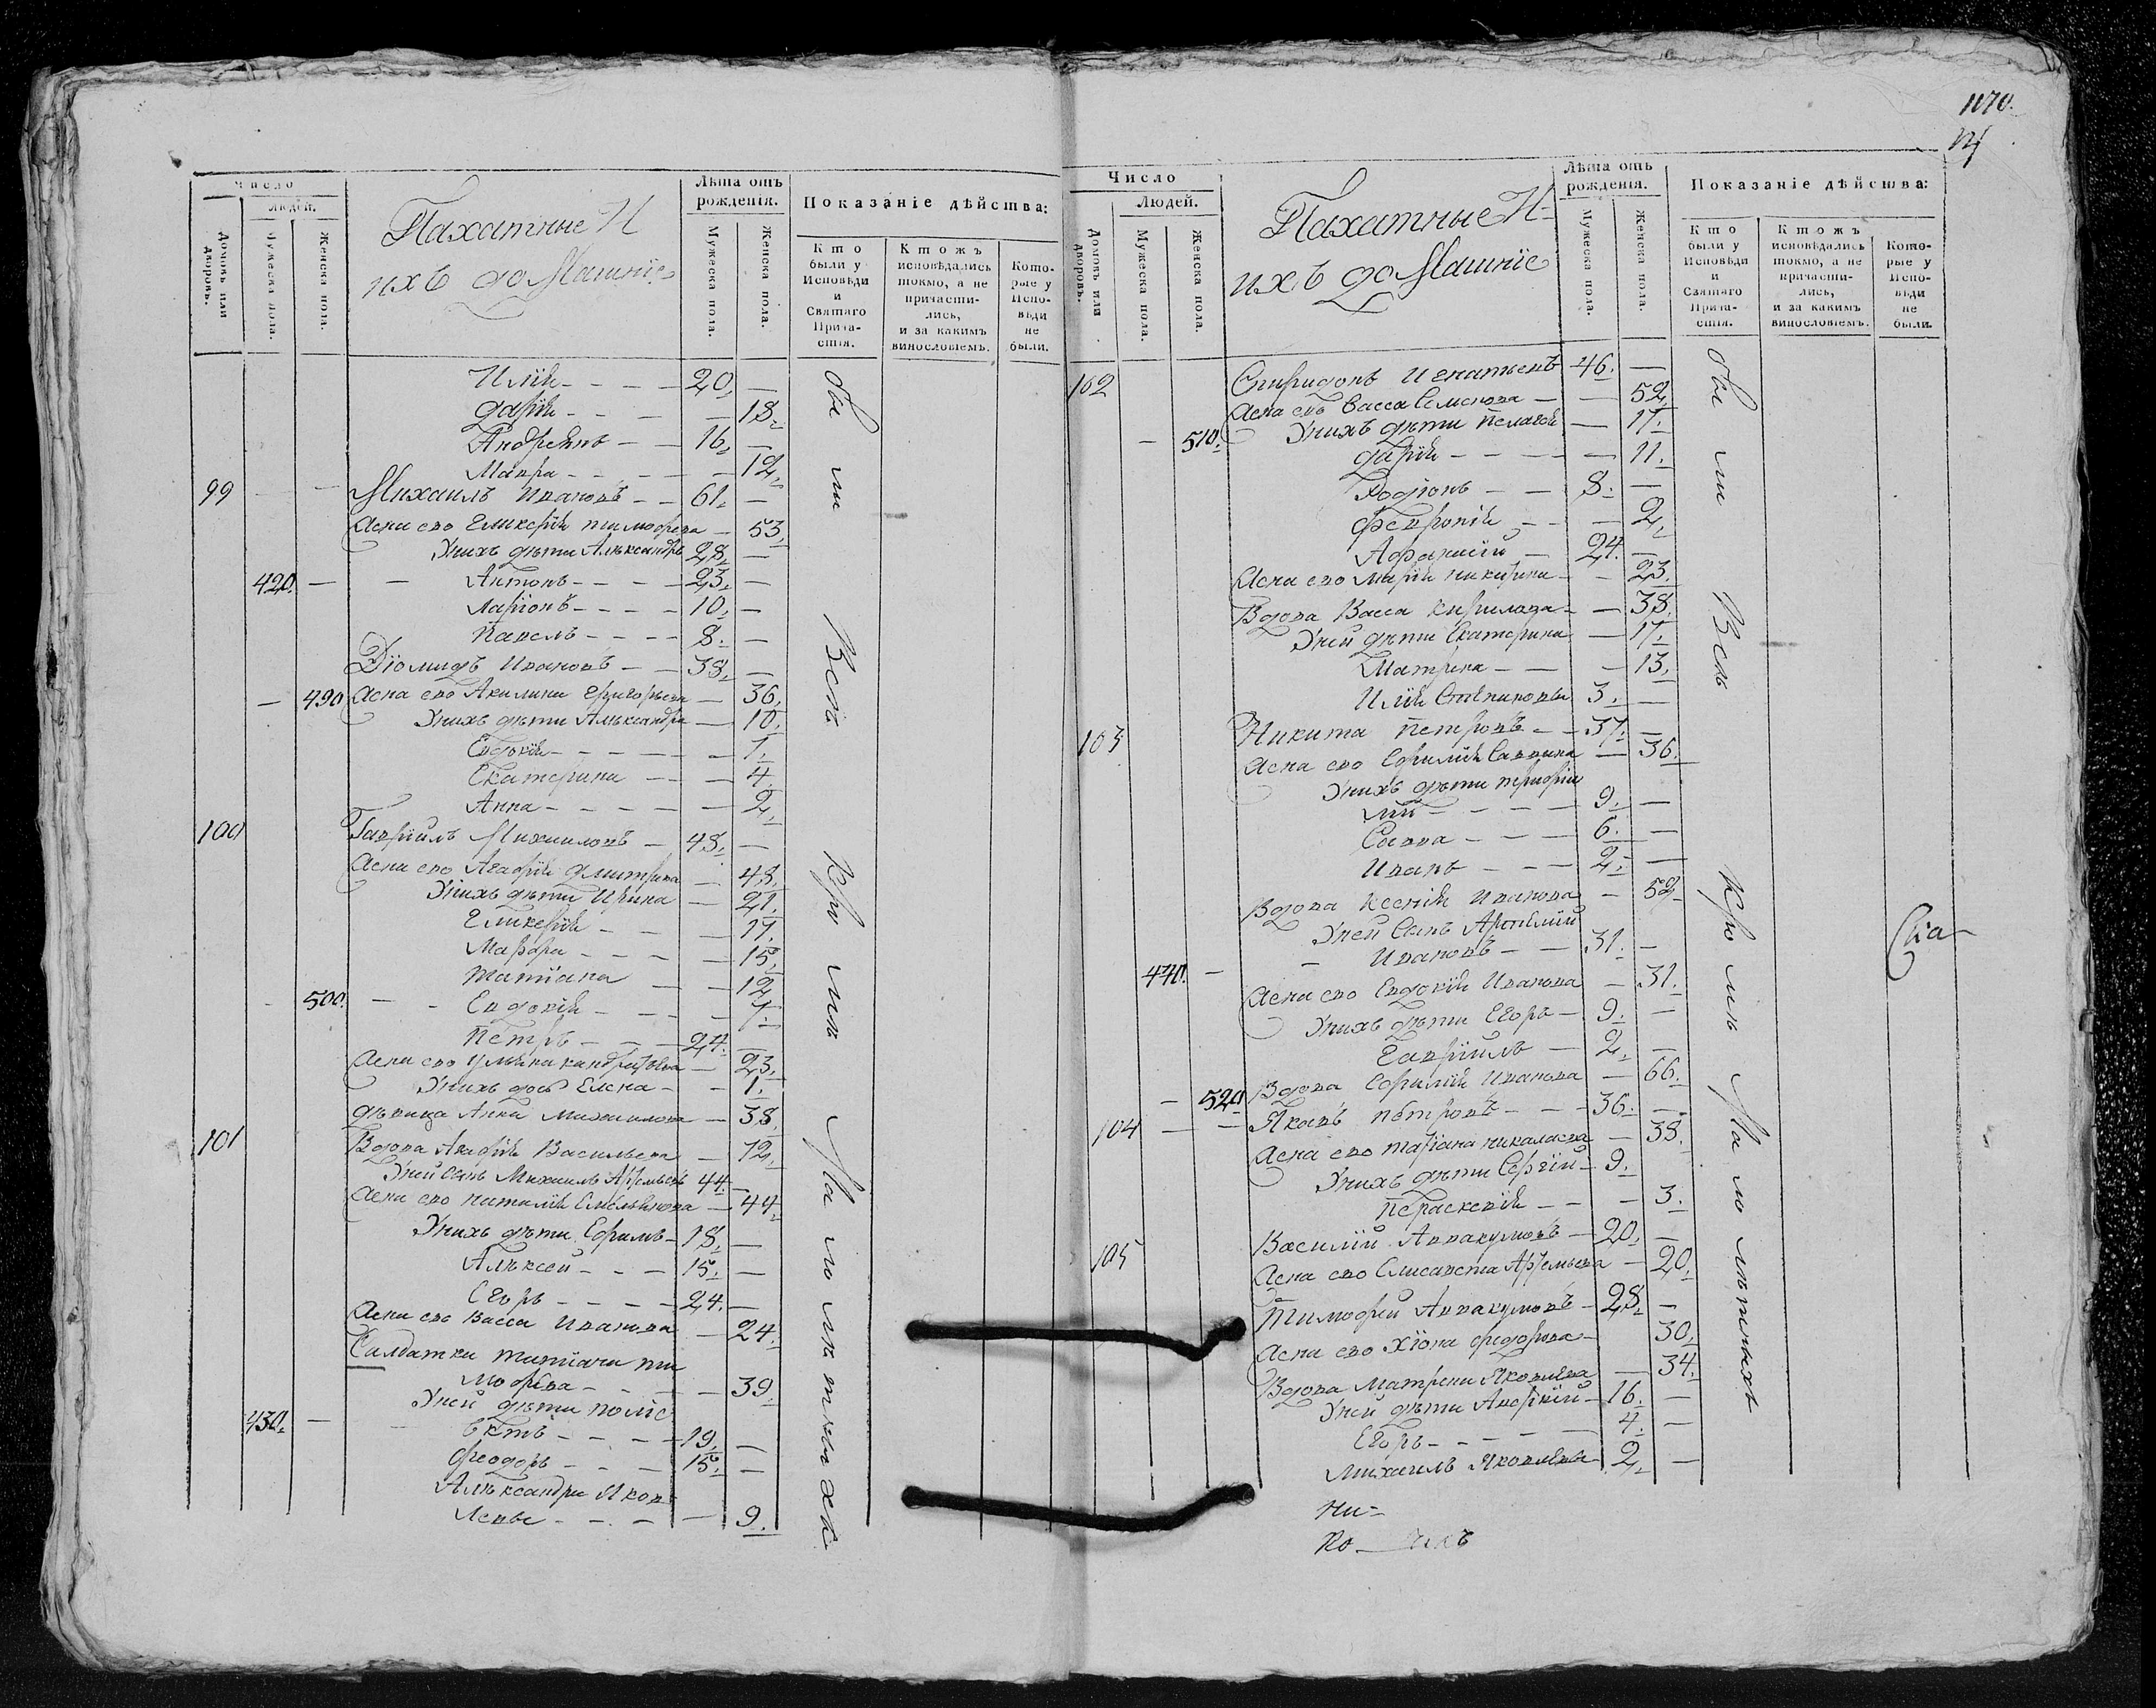 1170.
Число
Людей.
Домовъ или дворовъ.
Мужеска пола.
Женска пола.
Пахатные И
ихъ домашніе
Лѣта отъ рождения.
Мужеска пола.
Женска пола.
Показаніе дѣйства:
Кто были у Исповѣди и Святаго Прича-стія.
Ктожъ исповѣдались токмо, а не причасти-лись, и за какимъ винословіемъ.
Кото-рые у Испо-вѣди не были.
Илія - - - - 20. —
Дарія - - — 18.
Андреянъ - — 16. —
Мавра - - - - — 12.
99 — — Михаилъ Ивановъ - - 61. —
Жена ево Гликерія тимофеева — 53.
Унихъ дѣти Алѣксандръ 28. —
420. — — Антонъ - - - - 23. —
Ларіонъ - - - - 10. —
Павелъ - - - - 8. —
Діомидъ Ивановъ - — 38. —
— 490 Жена ево Акилина григорьева — 36.
Унихъ дѣти Алѣксандра — 10.
Евдокія - - - - — 7.
Екатерина - - — 4.
Анна - - - - - — 2.
100 Гавріилъ Михаиловъ — 48. —
Жена ево Агафія дмитрева — 48.
Унихъ дѣти Ирина — 21.
Гликерія - - — 17.
Марфа - - - - — 15.
татіана — — 12.
500. — - Евдокія - - — 7.
петръ - - - 24. —
Жена ево улияна кандратьева — 23.
Унихъ дочь Елена - - 1.
дѣвица Анна михаилова — 38.
101 Вдова Агафія Васильева — 72.
Уней Сынъ Михаилъ Артемьевъ 44. —
Жена ево наталія Емельянова — 44.
Унихъ дѣти Ефимъ - 18. —
Алѣксей - - — 15. —
Егоръ - - - - 24. —
Жена ево Васса Иванова — 24.
Салдатка татіана ти
мофѣева - - - — 39.
Уней дѣти полие
430. — — вктъ - - - - 19. —
феодоръ - - — 15. —
Алѣксандра Яков
левы - - - — 9.
Оы ли Всѣ Кро мѣ Ма ло лѣ тныхъ
Число
Людей.
Домовъ или дворовъ.
Мужеска пола.
Женска пола.
Пахатные И-
ихъ домашніе
Лѣта отъ рождения.
Мужеска пола.
Женска пола.
Показаніе дѣйства:
Кто были у Исповѣди и Святаго Прича-стія.
Ктожъ исповѣдались токмо, а не причасти-лись, и за какимъ винословіемъ.
Кото-рые у Испо-вѣди не были.
102 Спиридонъ Игнатьевъ 46. —
Жена евъ Васса Семенова — — 52.
— 510. Унихъ дѣти пелагея — 17.
дарія - - - - — 11.
Родіонъ - — 8. —
февронія - - — 2.
Афанасій — 24. —
Жена ево марія никитина - - 23.
Вдова Васса кирилова - — 38.
Уней дѣти Екатерина — 17.
Матрена - — — 13.
Илія 3. —
103 Никита петровъ - - 37. —
Жена ево Ефимія Саввина — 36.
Унихъ дѣти
лій - - - - 9. —
Савва - - - - 6. —
Иванъ - - — 2. —
Вдова Ксенія Иванова — 52
Уней Сынъ
470. — — Ивановъ - — 31. —
Жена ево Евдокія Иванова — 31.
Унихъ дѣти Егоръ — 9. —
Гавріилъ — 2. —
— 520. Вдова Ефимія Иванова — 66.
104 — — Яковъ пѣтровъ - - - 36. —
Жена ево татіана никалаева — 38.
Унихъ дѣти Сергій - 9.
пераскевія - - — 3.
105 Василій Аввакумовъ — 20. —
Жена ево Елисавета Артемьева — 20.
тимофей Аввакумовъ - 28. —
Жена ево Хіона федорова - 30.
Вдова Матрена Яковлева — 34.
Уней дѣти - 16. —
Егоръ - - - - — 4. —
михаилъ Яковлевы 2. —
Оы ли Всѣ Кро мѣ Ма ло лѣтныхъ
Ни-
ко